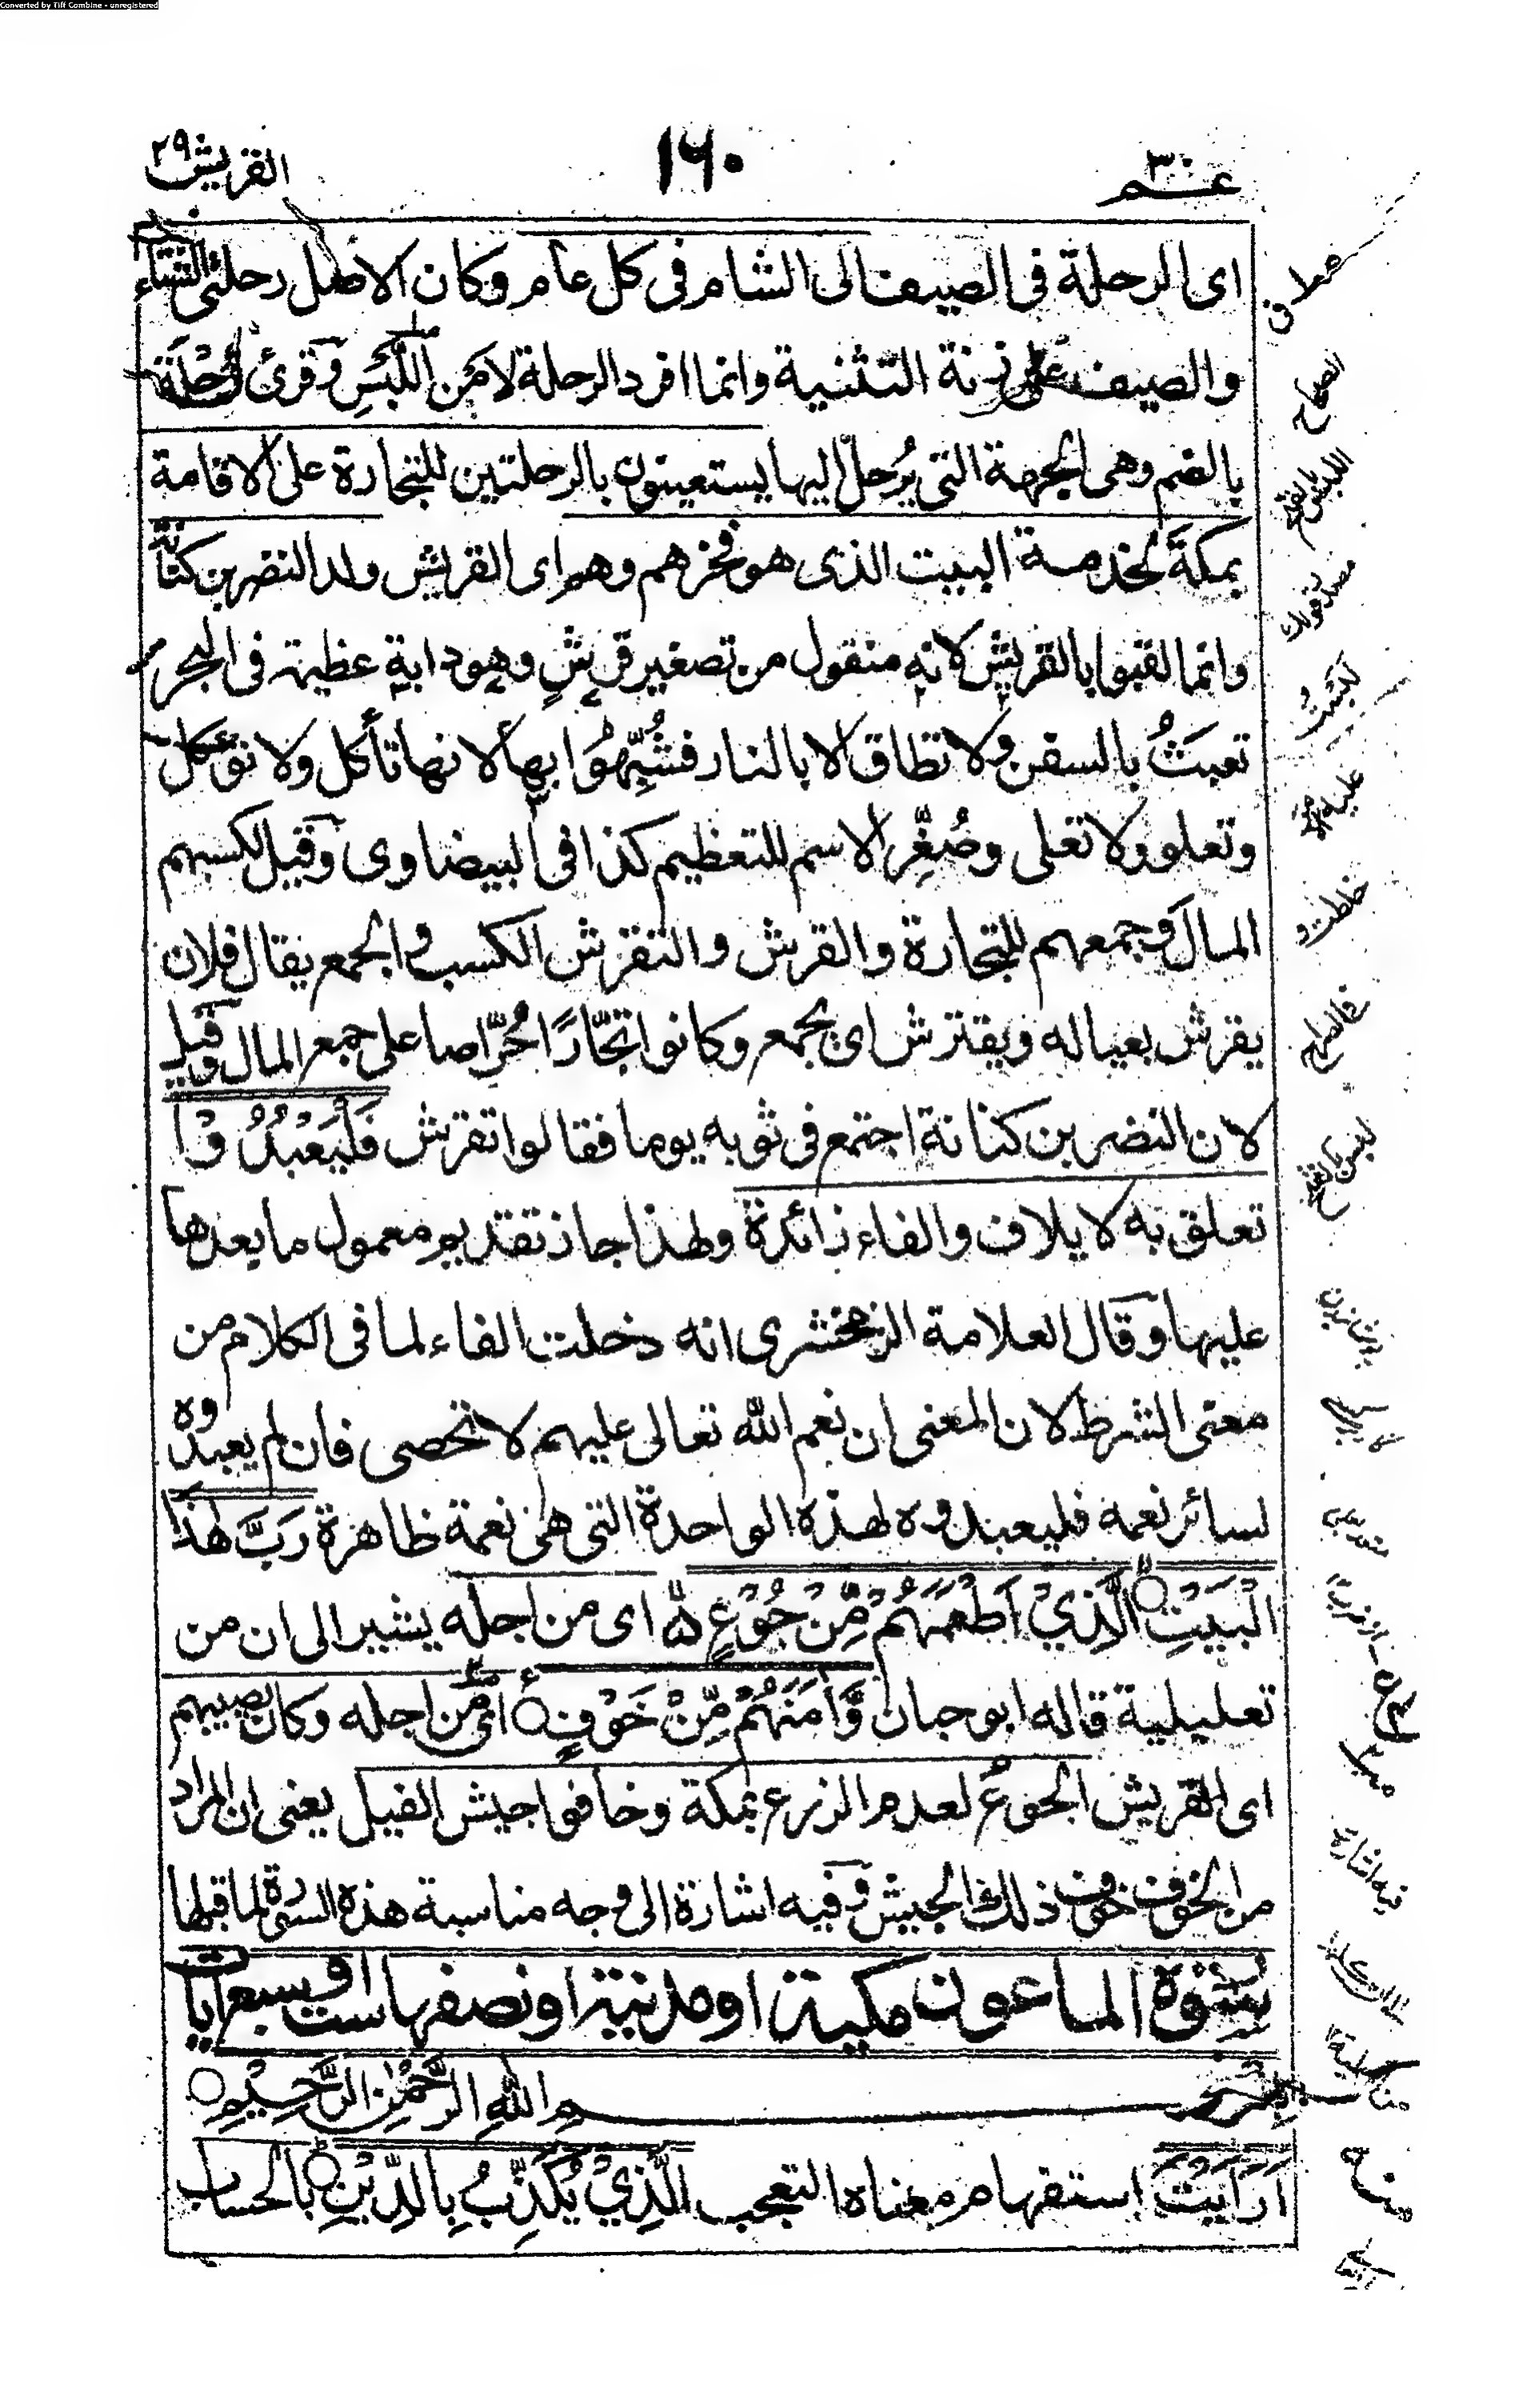 Converted by Tiff Combine - unregistered
عـم ٣٠
١٦٠
القريش ٢٩
اى الرحلة فى الصيف الى الشام فى كل عام وكان الاصل رحلتى الشتاء
والصيف على زنة التثنية وانما افرد الرحلة لامن اللبس وقرئ رُحْلَة
بالضم وهى الجهة التى يُرحلُ اليها يستعينون بالرحلتين للتجارة على الاقامة
بمكة لخدمة البيت الذى هو فخرهم وهم اى القريش ولد النضر بن كنانة
وانما لقبوا بالقريش لانه منقول من تصغير قرشٍ وهو دابة عظيمة فى البحر
تعبثُ بالسفن ولا تطاق الا بالنار فشُبِّهُوا بها لانها تأكل ولا تؤكل
وتعلو ولا تعلى وصُغِّر الاسم للتعظيم كذا فى البيضاوى وقيل لكسبهم
المال وجمعهم للتجارة والقرش والتقرش الكسب والجمع يقال فلان
يقرش بعياله ويقترش اى يجمع وكانوا تجّارًا حُرّاصا على جمع المال وقيل
لان النضر بن كنانة اجتمع فى ثوبه يوما فقالوا تقرش فَلْيَعْبُدُوْا
تعلق به لايلاف والفاء زائدة ولهذا جاز تقديم معمول ما بعدها
عليها وقال العلامة الزمخشرى انه دخلت الفاء لما فى الكلام من
معنى الشرط لان المعنى ان نعم الله تعالى عليهم لا تحصى فان لم يعبدوه
لسائر نعمه فليعبدوه لهذه الواحدة التى هى نعمة ظاهرة رَبَّ هٰذَا
الْبَيْتِ الَّذِيْٓ اَطْعَمَهُمْ مِّنْ جُوْعٍ اى من اجله يشير الى ان من
تعليلية قاله ابو حبان وَّاٰمَنَهُمْ مِّنْ خَوْفٍ اى من اجله وكان يصيبهم
اى القريش الجوعُ لعدم الزرع بمكة وخافوا جيش الفيل يعنى ان المراد
من الخوف خوف ذلك الجيش وفيه اشارة الى وجه مناسبة هذه السورة لما قبلها
سورة الماعون مكية او مدنية او نصفها ست او سبع ايات
بسم الله الرَّحْمٰنِ الرَّحِيْمِ
اَرَاَيْتَ استفهام معناه التعجب الَّذِيْ يُكَذِّبُ بِالدِّيْنِ بالحساب